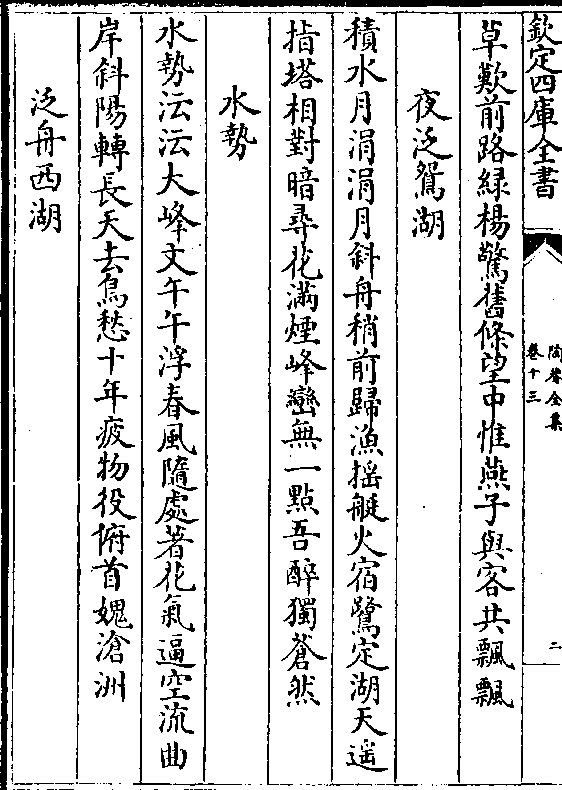 欽定四庫全書
陶菴全集
卷十三
二
草歎前路緑楊驚舊條望中惟燕子與客共飄飄
夜泛鴛湖
積水月涓涓月斜舟稍前歸漁揺艇火宿鷺定湖天遥
指塔相對暗尋花滿煙峰巒無一點吾醉獨蒼然
水勢
水勢沄沄大峰文午午浮春風隨處著花氣逼空流曲
岸斜陽轉長天去鳥愁十年疲物役俯首媿滄洲
泛舟西湖